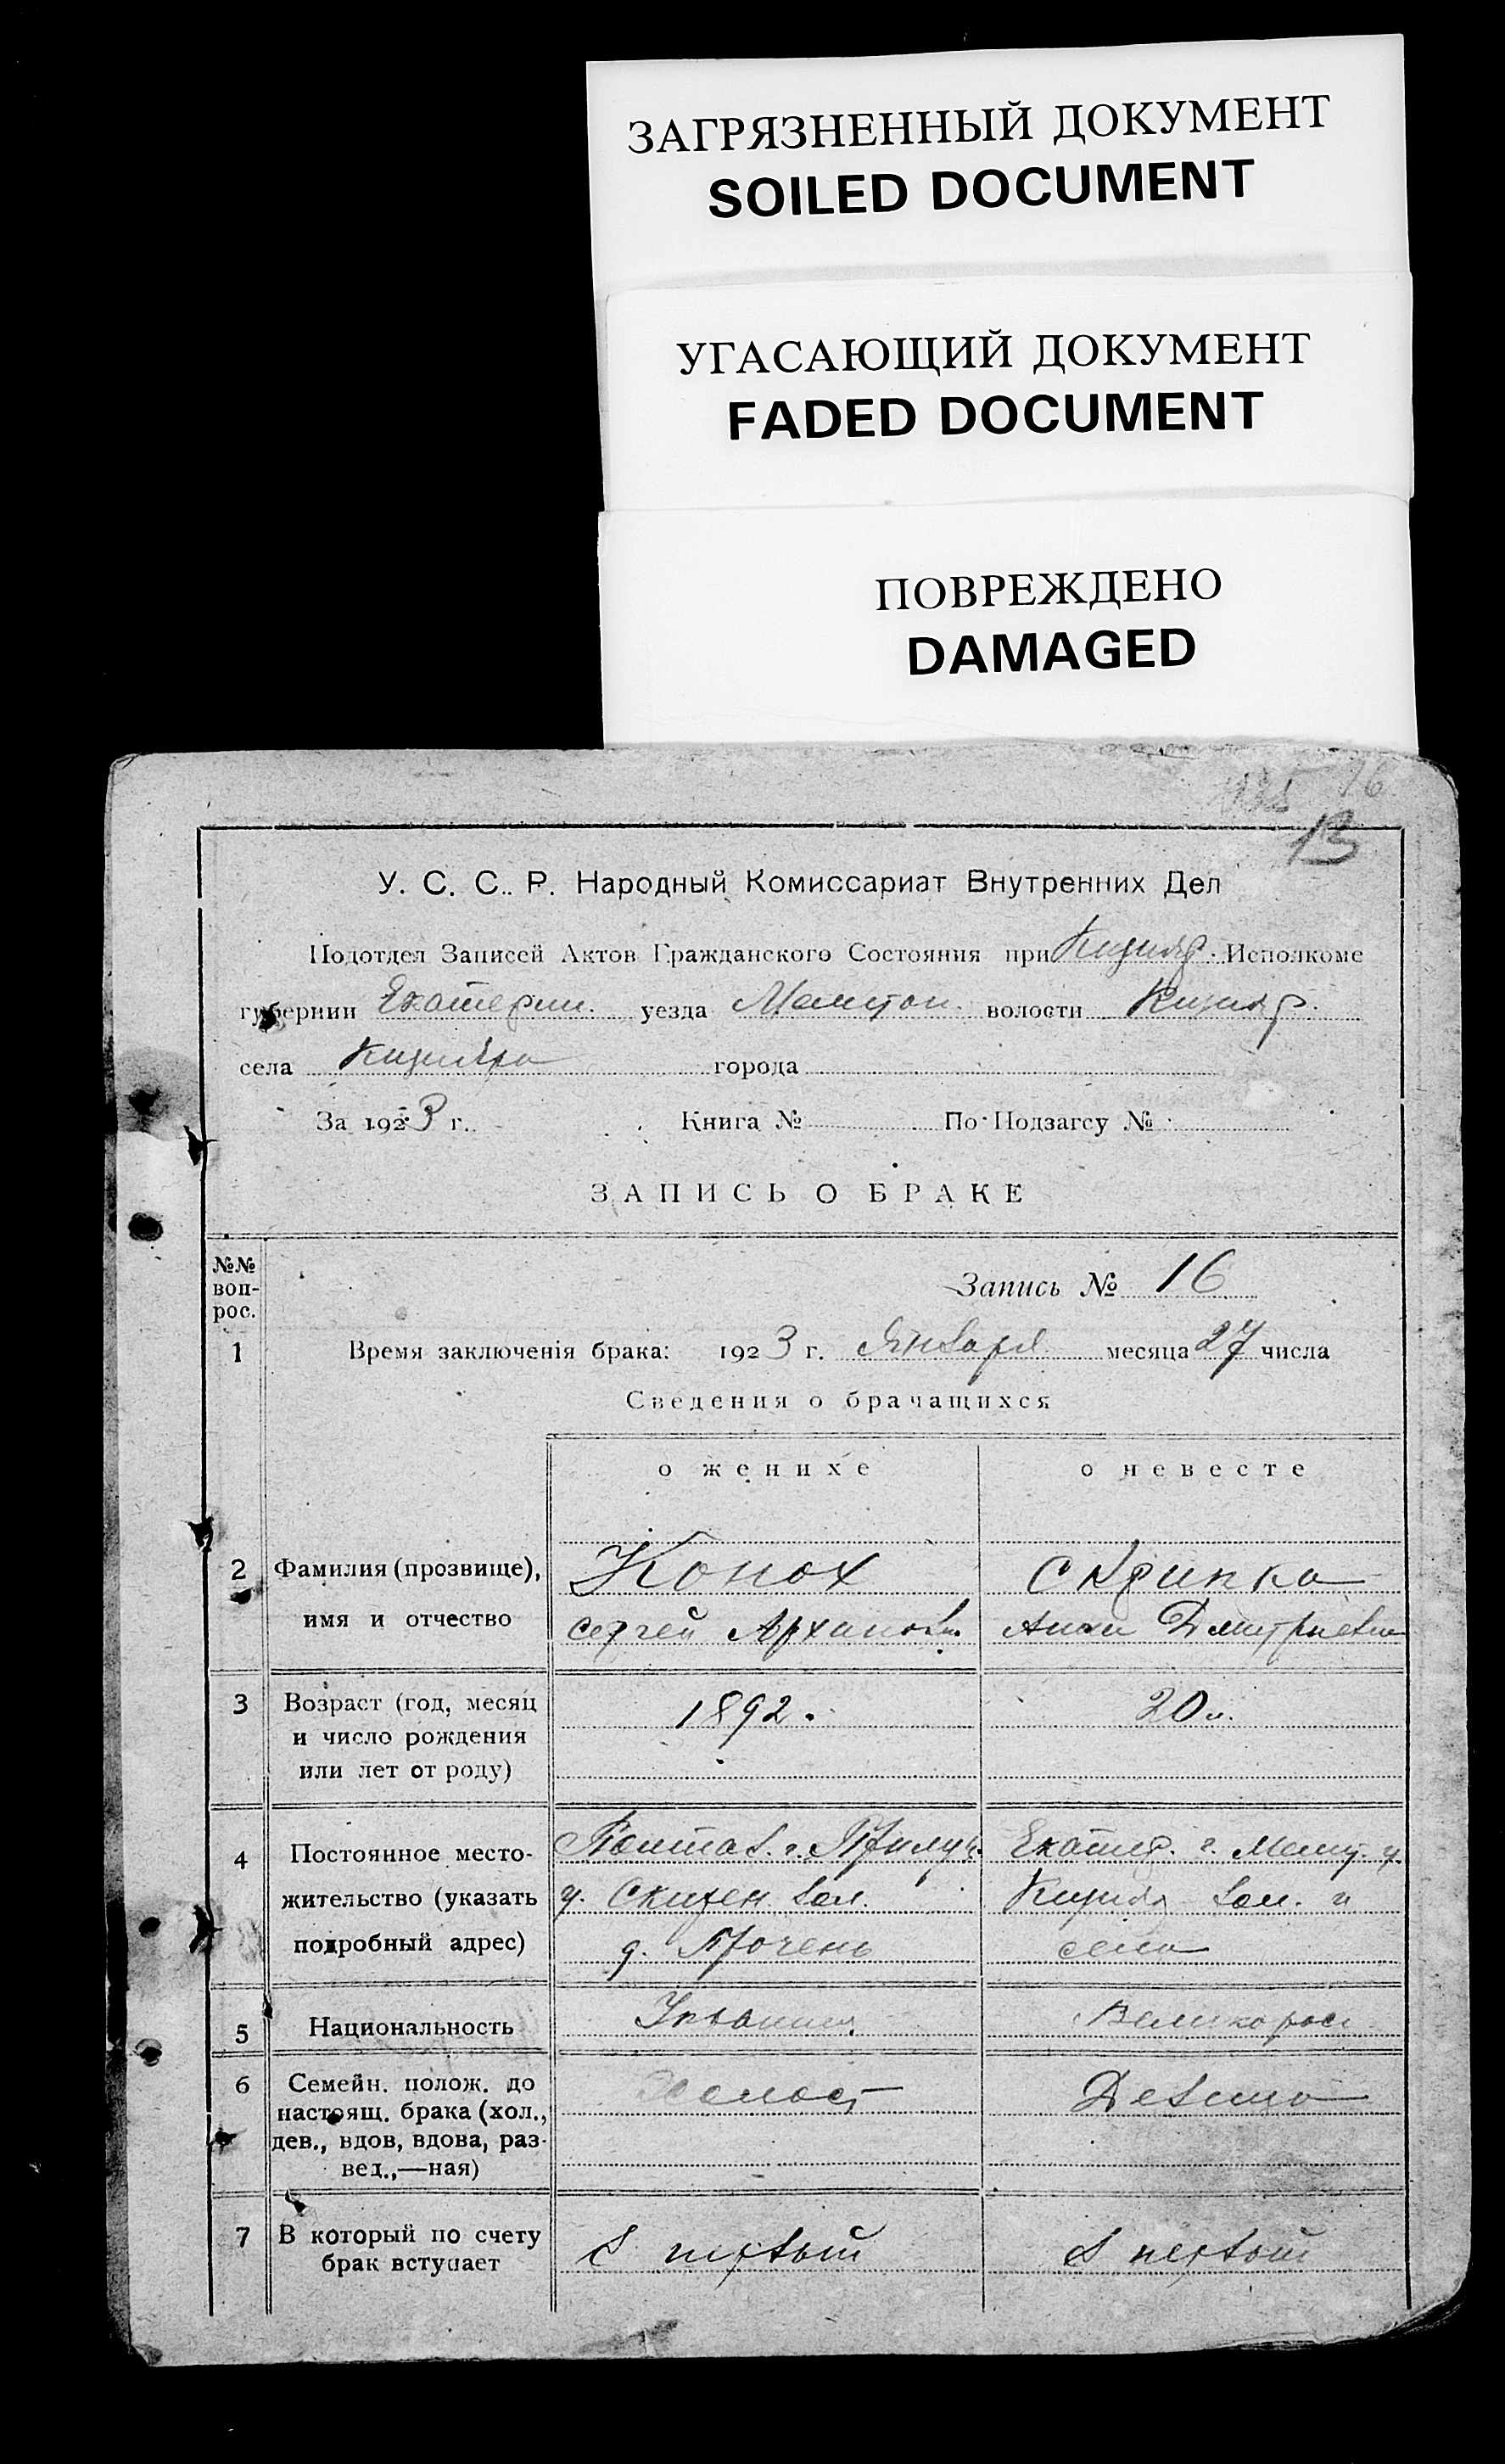 ЗАГРЯЗНЕННЫЙ ДОКУМЕНТ
SOILED DOCUMENT
УГАСАЮЩИЙ ДОКУМЕНТ
FADED DOCUMENT
ПОВРЕЖДЕНО
DAMAGED
16
13
У. С. С. Р. Народный Комиссариат Внутренних Дел
Подотдел Записей Актов Гражданского Состояния при Кизияр. Исполкоме
губернии Екатерин. уезда Мелитоп. волости Кизияр.
села Кизияра города
За 1923 г. Книга № По Подзагсу №
ЗАПИСЬ О БРАКЕ
№№ воп-рос.
Запись № 16
1 Время заключенія брака: 1923 г. Января месяца 27 числа
Сведения о брачащихся
о женихе о невесте
2 Фамилия (прозвище), Конох Скрипка
имя и отчество Сергей Архипов. Анна Дмитриевна
3 Возраст (год, месяц 1892. 20 л.
и число рождения
или лет от роду)
4 Постоянное место- Полтав. г. Прилуц. Екатер. г. Мелит. у.
жительство (указать у. вол. Кизияр вол. и
подробный адрес) д. села
5 Национальность Великорос
6 Семейн. полож. до Холост Девица
настоящ. брака (хол.,
дев., вдов, вдова, раз-
вед.,—ная)
7 В который по счету В первый В первый
брак вступает